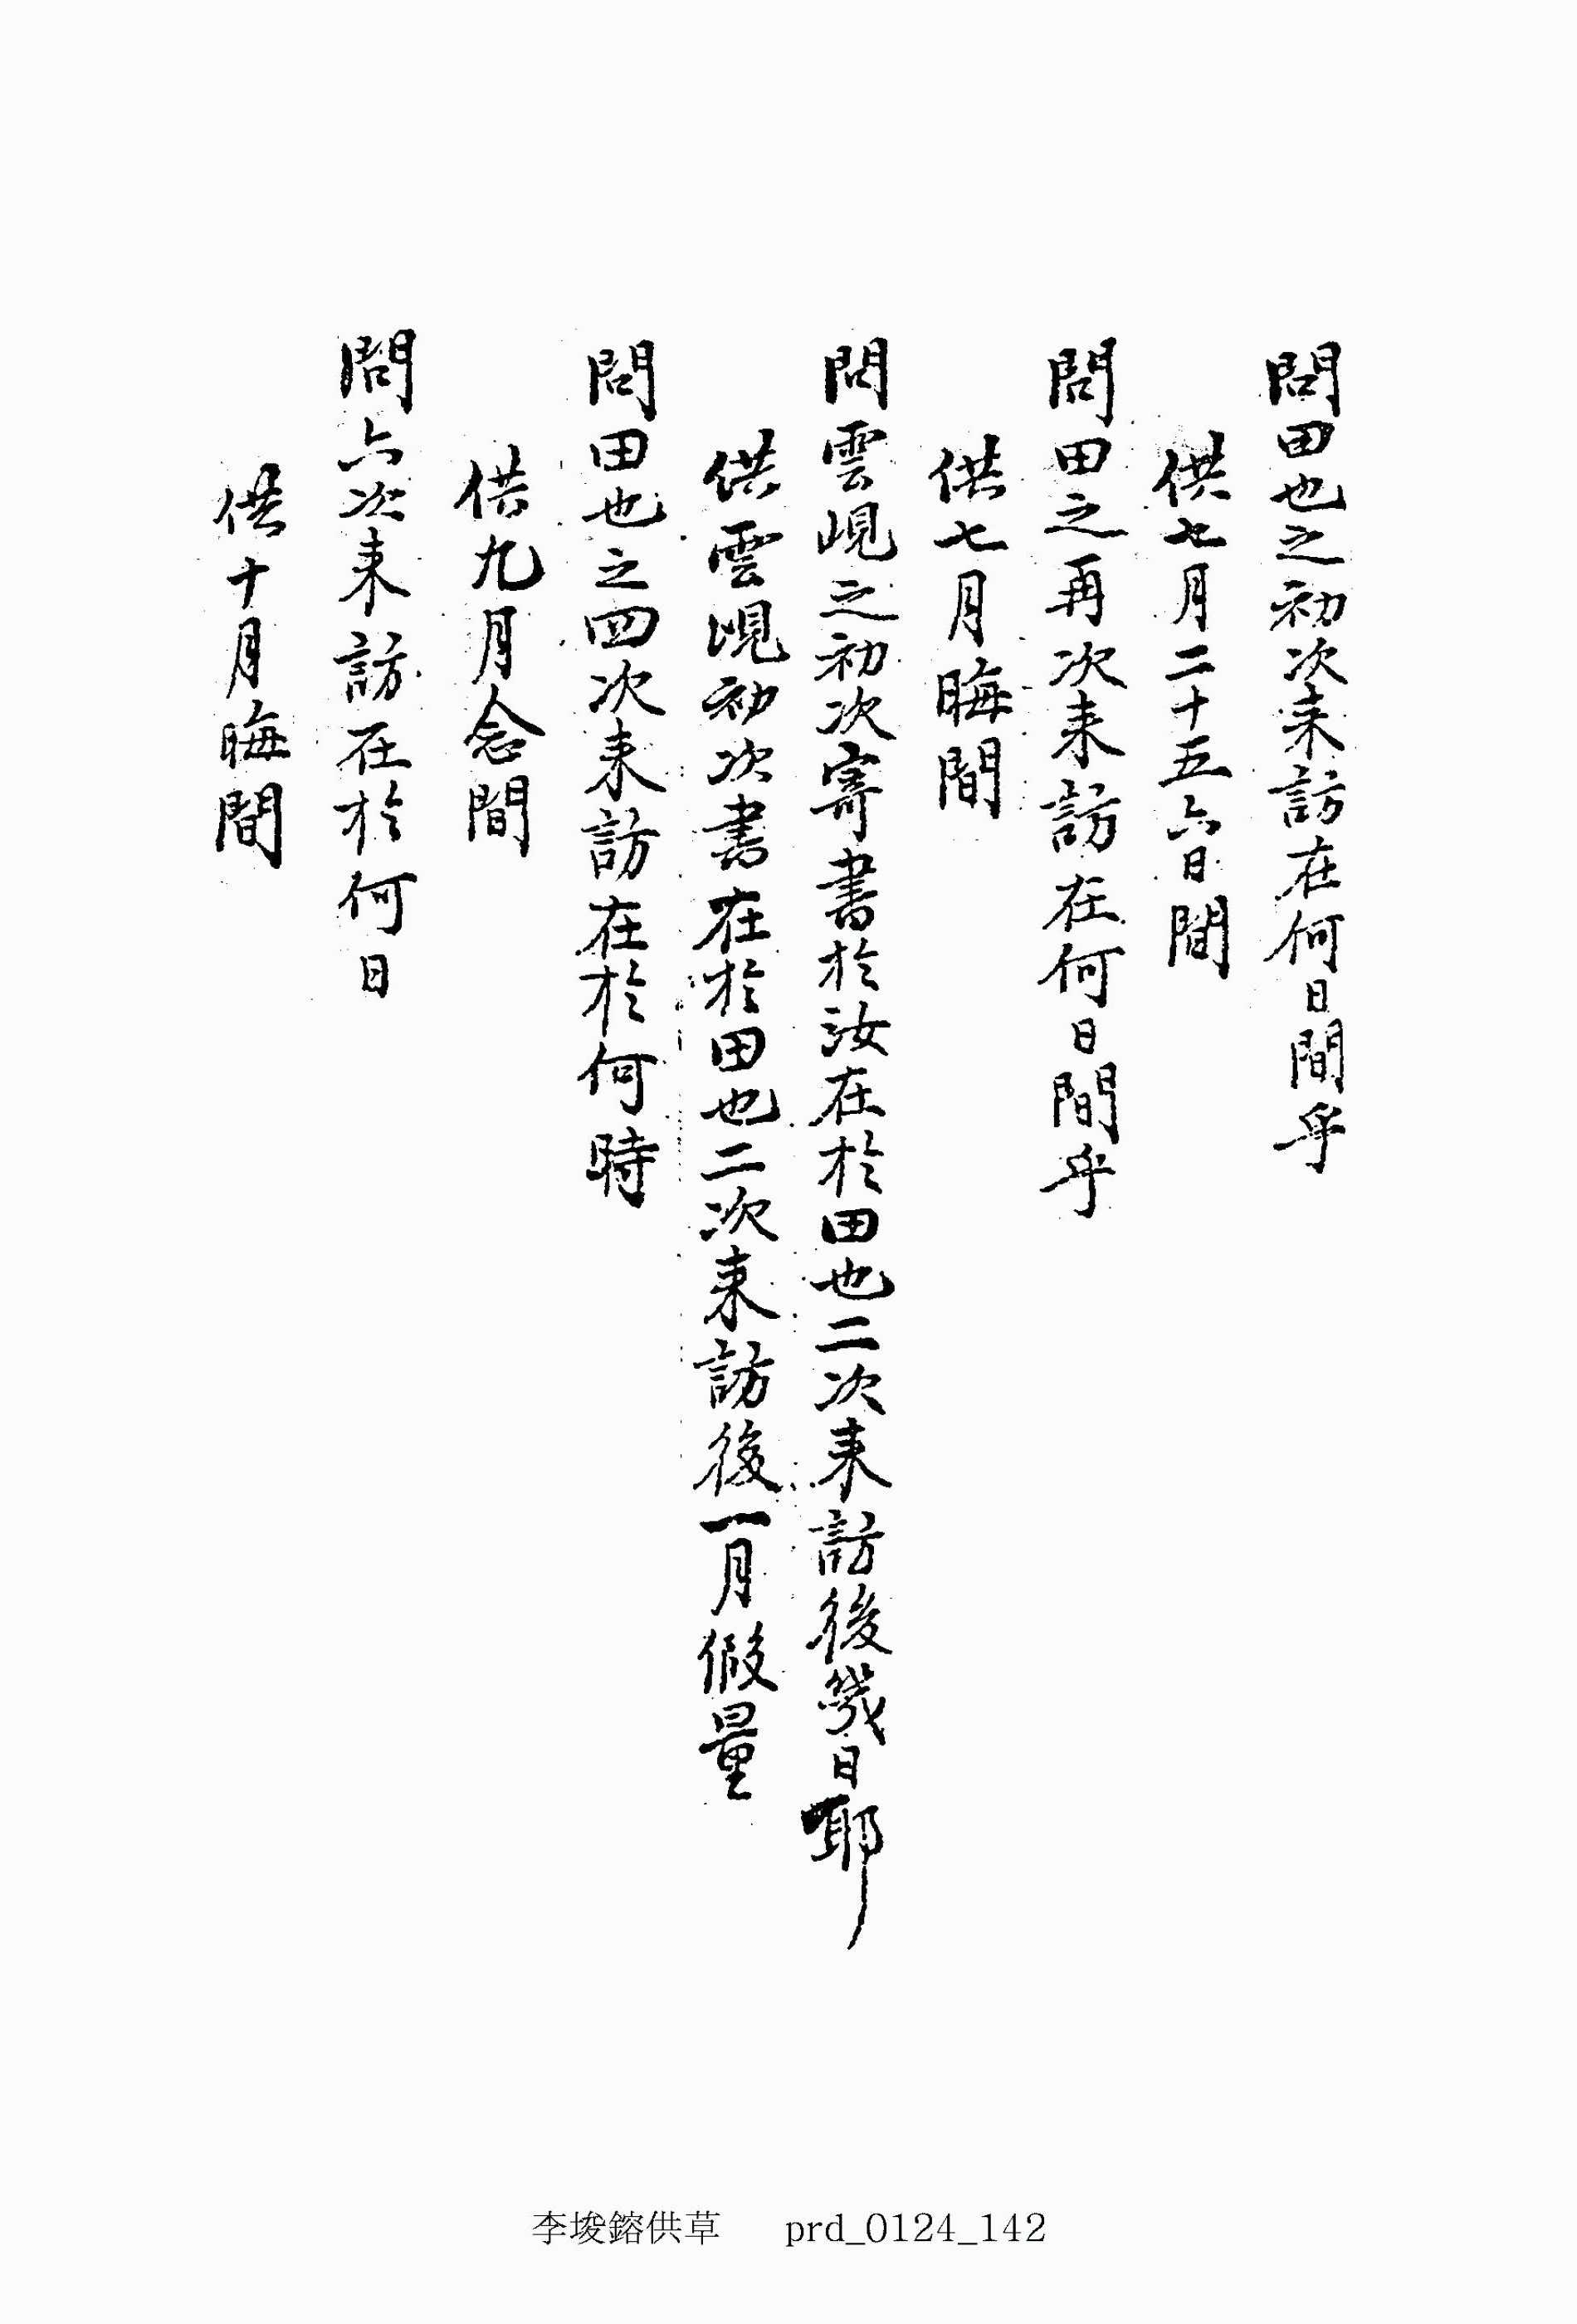 問田也之初次来訪在何日間乎
供七月二十五六日間
問田之再次来訪在何日間乎
供七月晦間
問雲峴之初次寄書於汝在於田也二次来訪後幾日耶
供雲峴初次書在於田也二次来訪後一月假量
問田也之四次来訪在於何時
供九月念間
問六次来訪在於何日
供十月晦間
李埈鎔供草 prd_0124_142